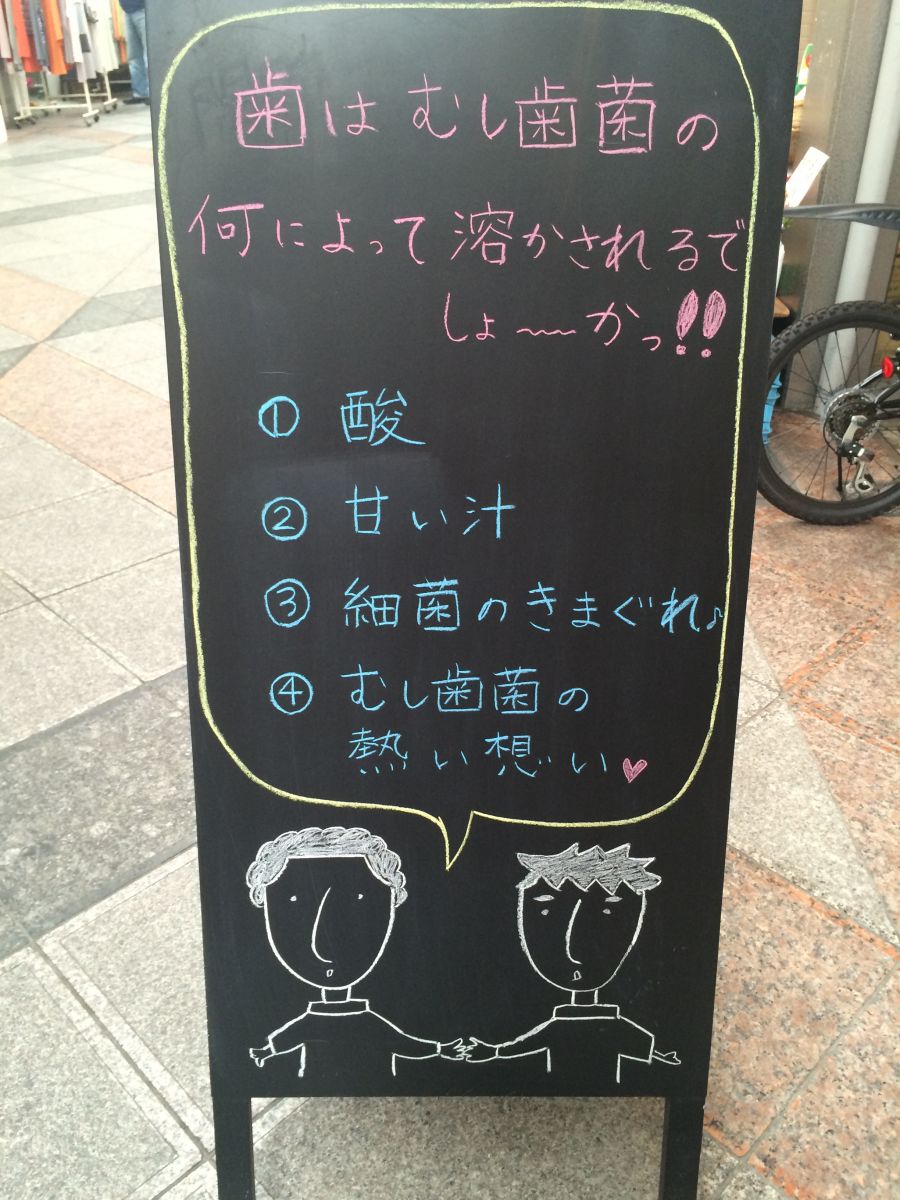 歯はむし歯菌の
何によって溶かされるで
しょ〜〜かっ!!
① 酸
② 甘い汁
③ 細菌のきまぐれ♪
④ むし歯菌の
熱い想い♥